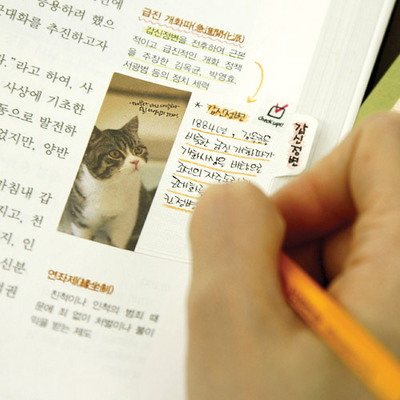 응용하려 했으
근대화를 추진하고자
"라고 하여, 사
사상에 기초한
동으로 발전하
었지만, 양반
마침내 갑
지고, 천
지, 인
신분
권
급진 개화파(急進開化派)
갑신정변을 전후하여, 근본
적이고 급진적인 개화 정책
을 주장한 김옥균, 박영효,
서광범 등의 정치 세력
* 갑신정변
check up!
갑신정변
1884년, 김옥균을
비롯한 급진 개화파가
개화사상을 바탕으로
조선의 자주독립
근대화
정변
연좌제(緣坐制)
친척이나 인척의 범죄 때
문에 죄 없이 처벌이나 불이
익을 받는 제도